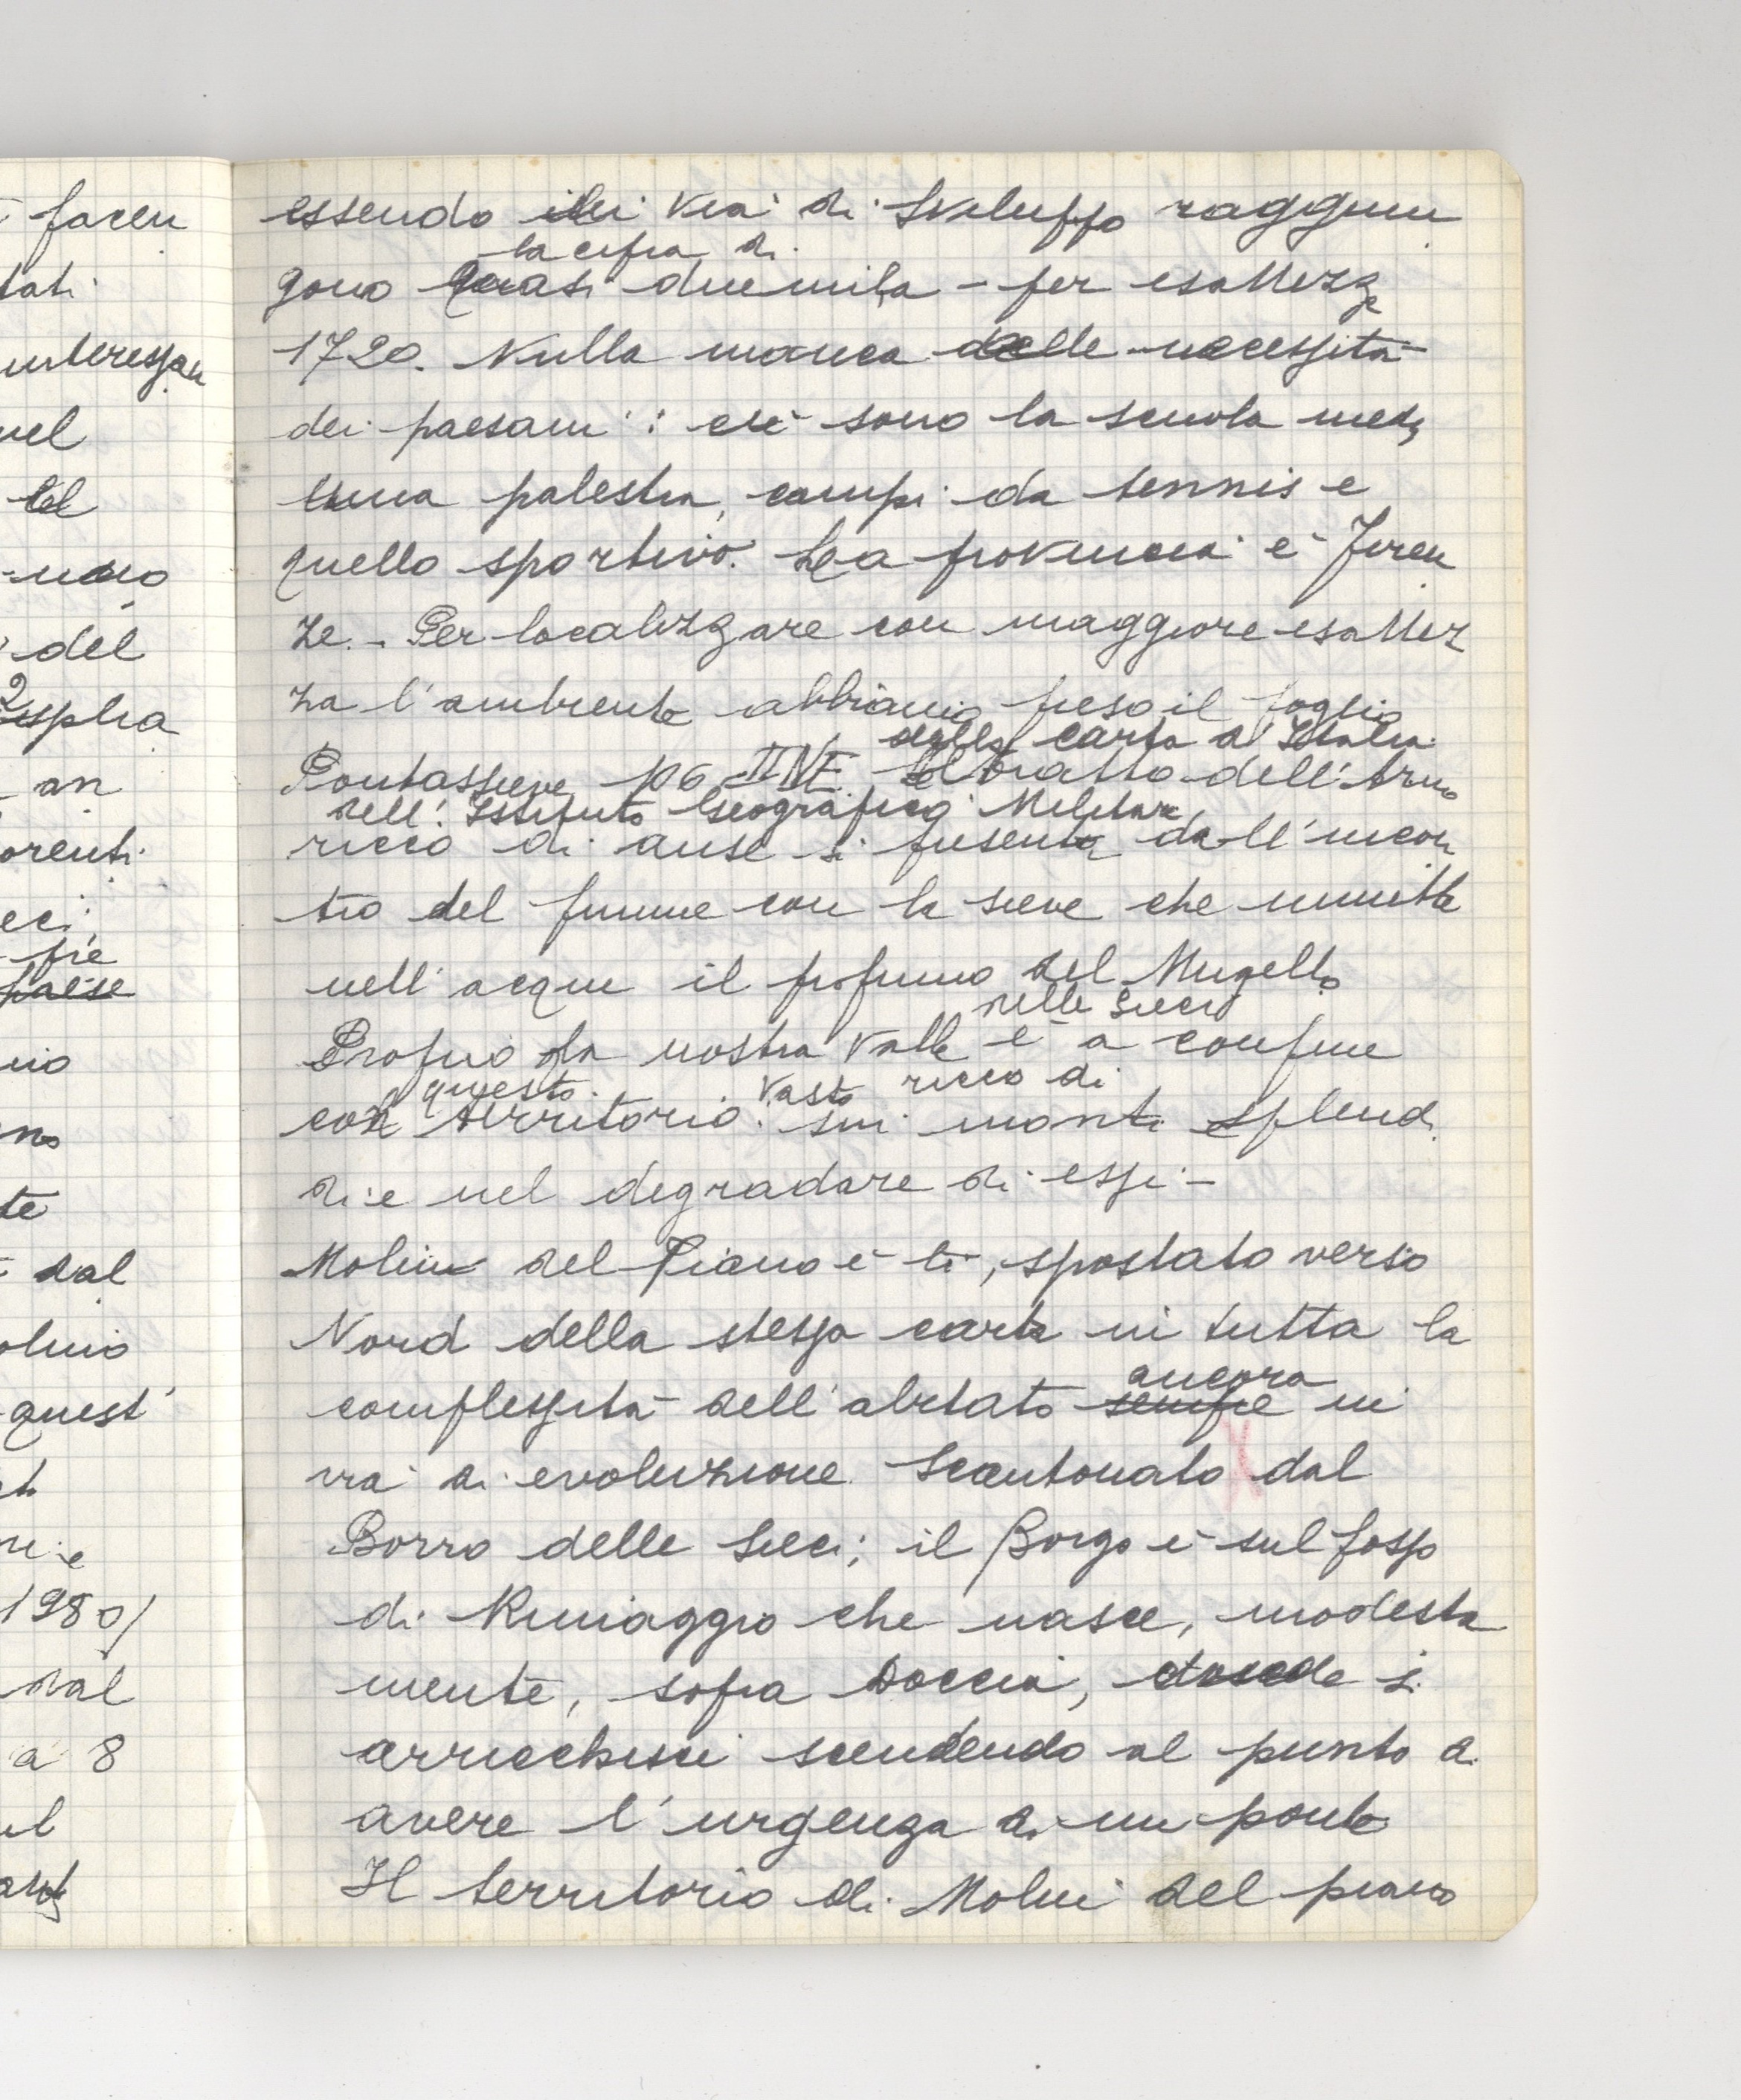 facen
tati
interessan
nel
tel
del
an
orenti
eci
pie
paese
nio
no
te
dal
quest'
1980/
dal
a 8
ul
essendo in via di sviluppo raggiun
la cifra di
gono quasi duemila - per esattezza
1720. Nulla manca delle necessità
dei paesani: ci sono la scuola med,
una palestra, campi da tennis e
quello sportivo. La provincia è Firen
ze. - Per localizzare con maggiore esattez
za l'ambiente abbiamo preso il foglio
della carta d'Italia
Pontassieve 106 II NE. Il tratto dell'Arno
dell'Istituto Geografico Militare
ricco di anse si presenta dall'incon
tro del fiume con la Sieve che immette
nell'acque il profumo del Mugello
delle Sieci
Proprio la nostra valle è a confine
questo vasto ricco di
con territorio. sui monti splend
di e nel degradare di essi -
Molin del Piano è lì, spostato verso
Nord della stessa carta in tutta la
ancora
complessità dell'abitato sempre in
via di evoluzione. Scantonato dal
Borro delle Sieci; il Borgo è sul fosso
di Rimaggio che nasce, modesta
mente, sopra Doccia, si
arricchisci scendendo al punto di
avere l'urgenza di un ponte
Il territorio di Molin del piano